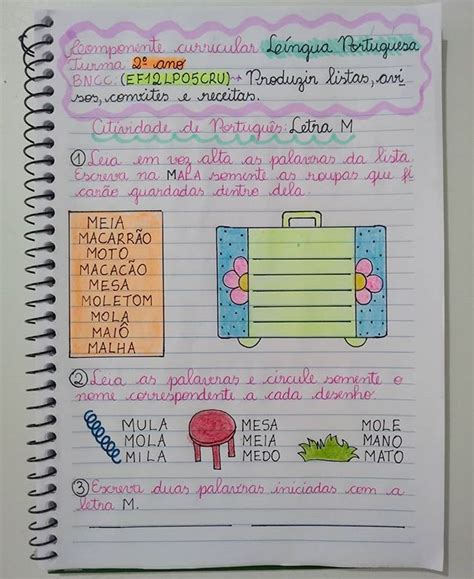 Componente curricular Língua Portuguesa
Turma 2º ano
BNCC: (EF12LP05CRU) → Produzir listas, avi
sos, convites e receitas.
Atividade de Português: Letra M
① Leia em voz alta as palavras da lista.
Escreva na MALA somente as roupas que fi
carão guardadas dentro dela.
MEIA
MACARRÃO
MOTO
MACACÃO
MESA
MOLETOM
MOLA
MAIÔ
MALHA
② Leia as palavras e circule somente o
nome correspondente a cada desenho.
MULA
MOLA
MILA
MESA
MEIA
MEDO
MOLE
MANO
MATO
③ Escreva duas palavras iniciadas com a
letra M.